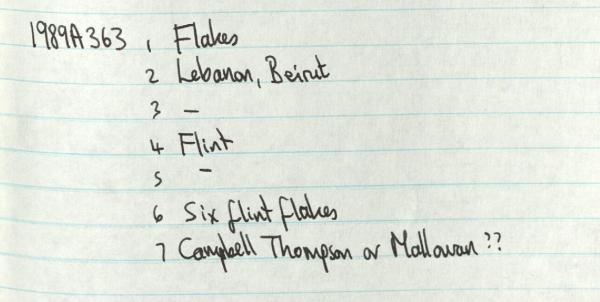 1989A363 1 Flakes
2 Lebanon, Beirut
3 –
4 Flint
5 –
6 Six flint flakes
7 Campbell Thompson or Mallowan ??